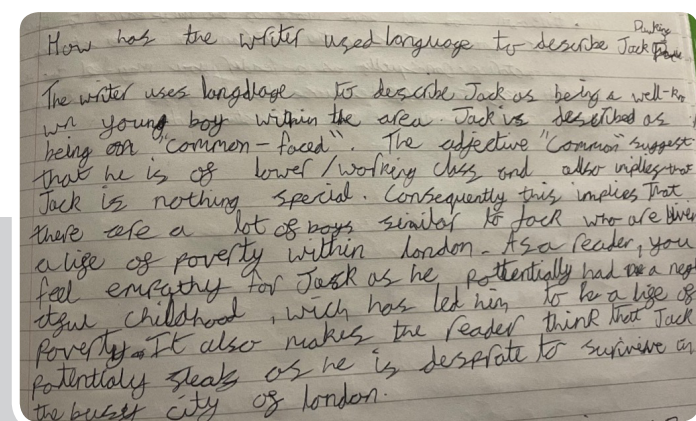 How has the writer used language to describe Jack Dawkins
The writer uses language to describe Jack as being a well-kn
wn young boy within the area. Jack is described as
being an "common-faced". The adjective "Common" suggest
that he is of lower/working class and allso implies that
Jack is nothing special. Consequently this implies That
there are a lot of boys similar to Jack who are liven
a lige of poverty within london. As a reader, you
feel empathy for Jack as he pottentially had a negl
tful childhood, wich has led him to be a lige of
poverty. It also makes the reader think That Jack
potentialy steals as he is desprate to surivive in
the busy city of london.